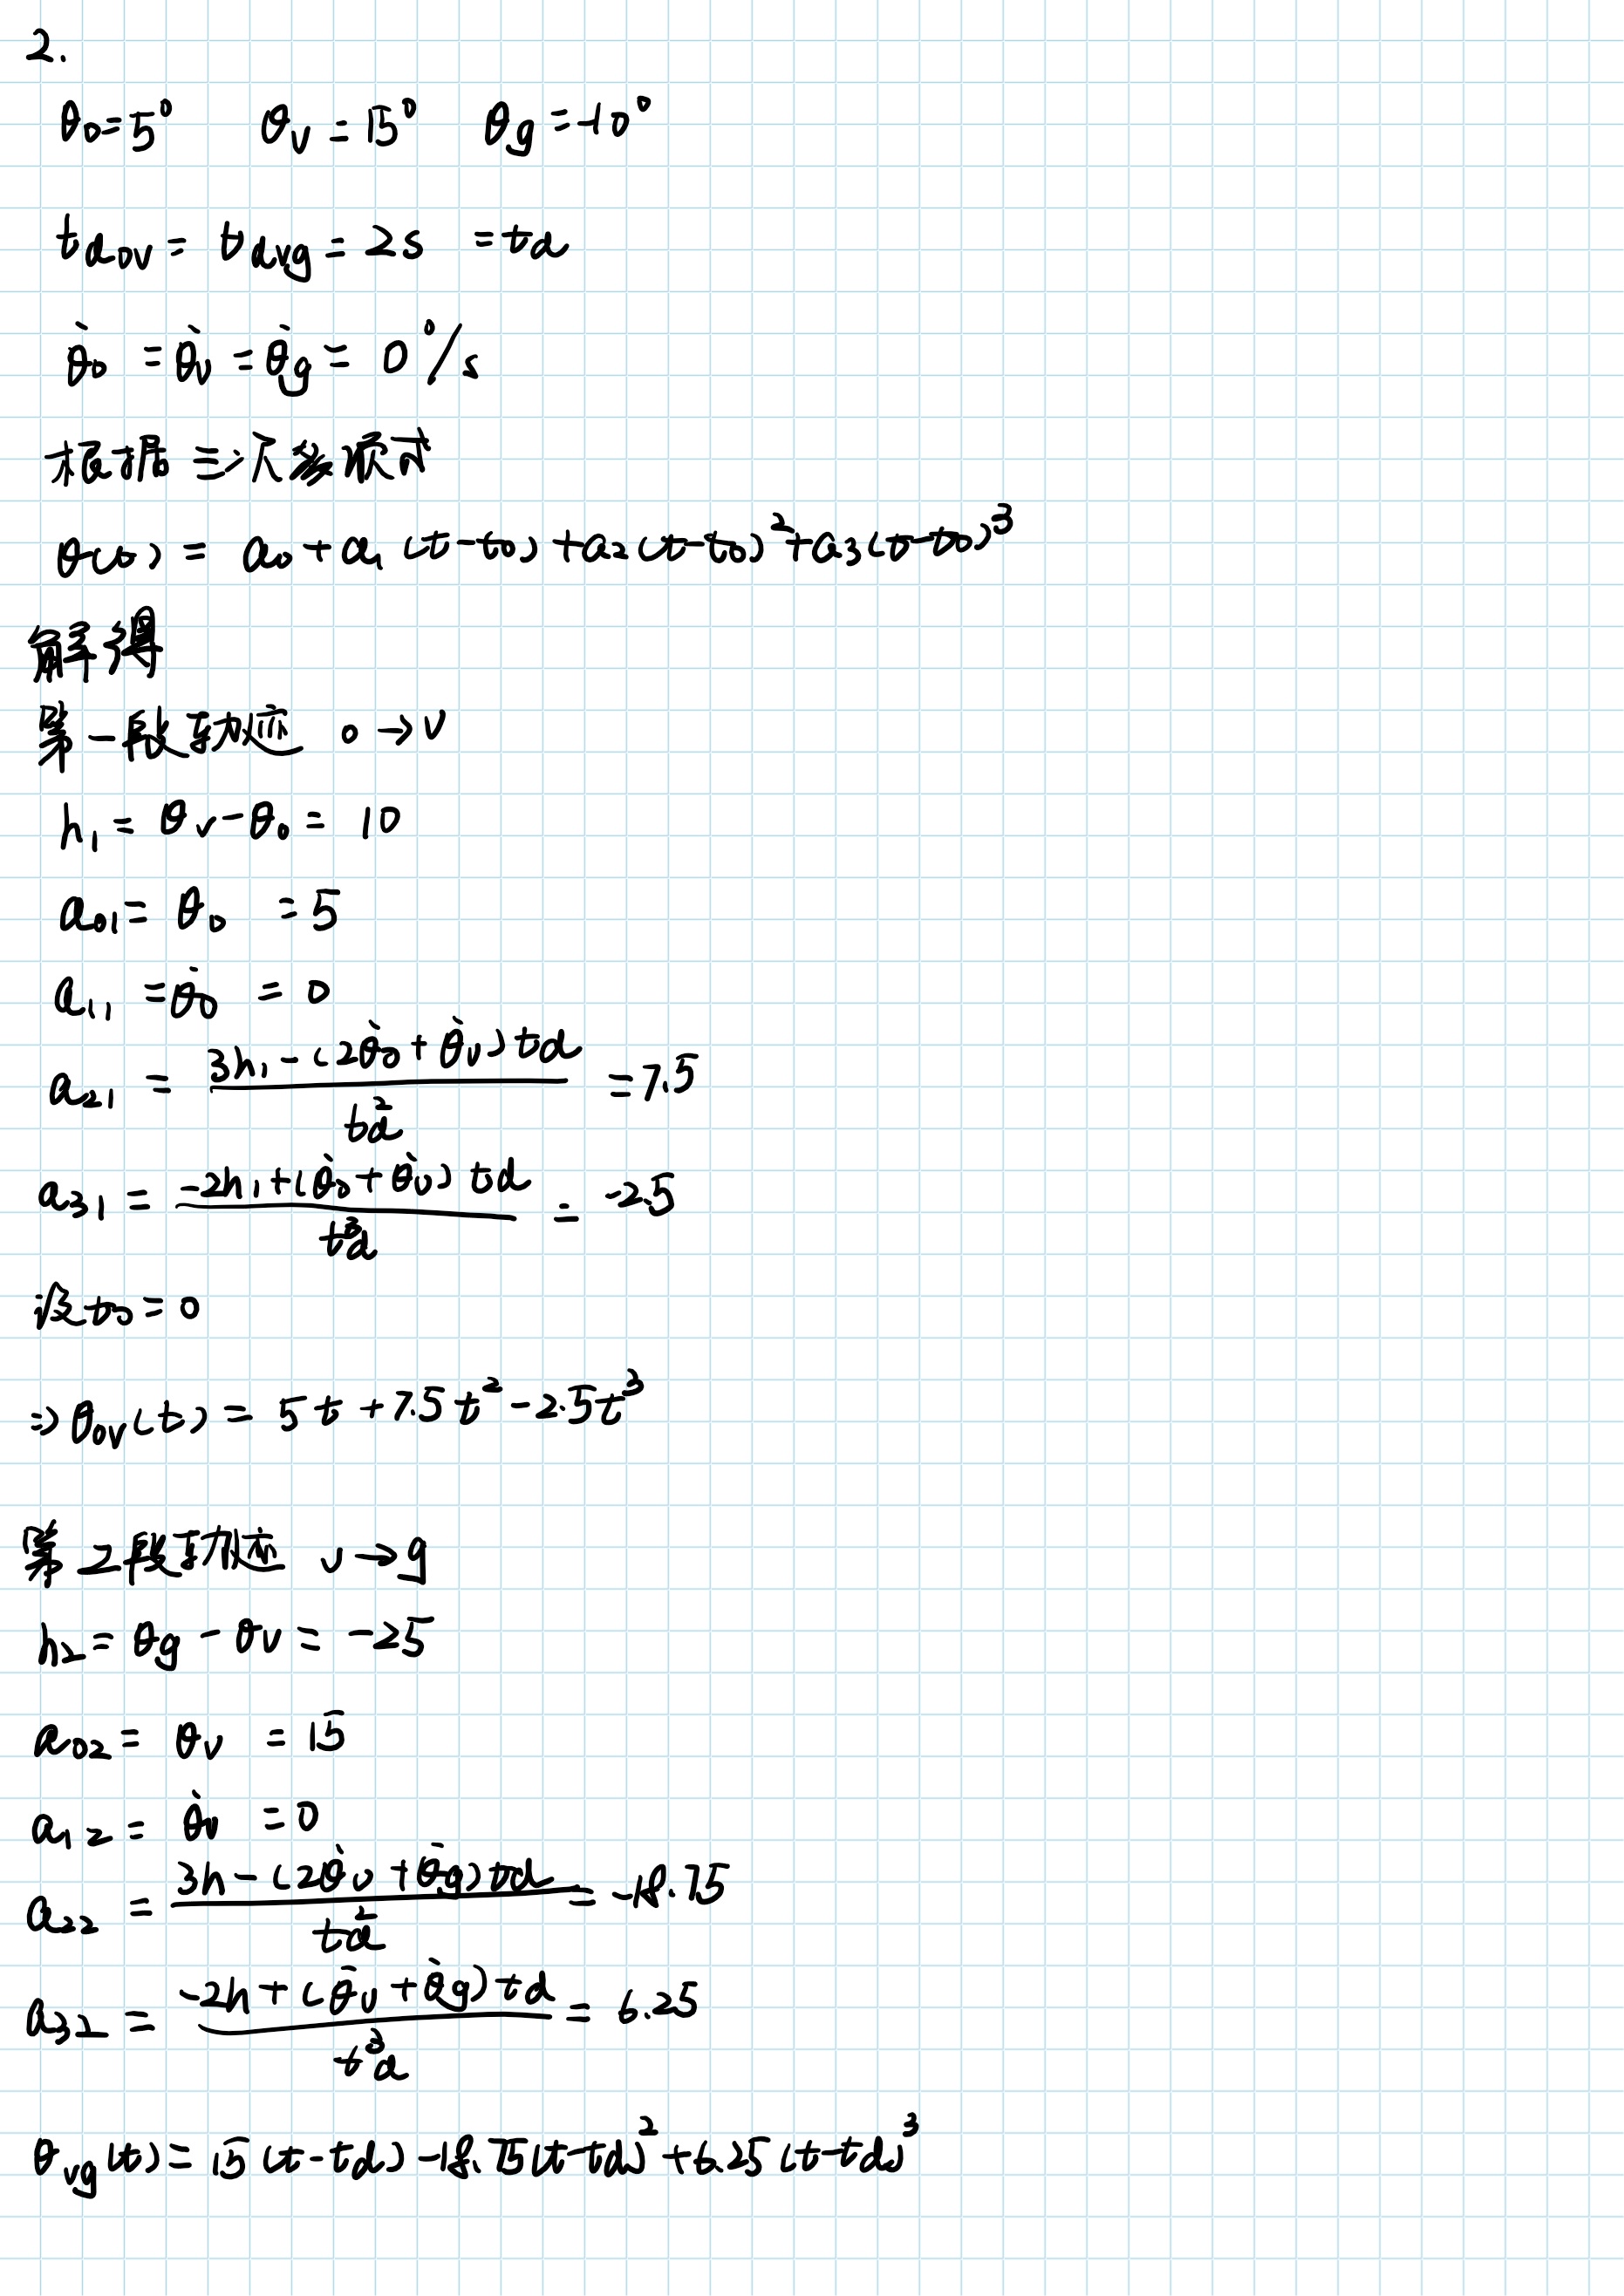 2.
θ₀=5° θᵥ=15° θg=-10°
td₀ᵥ = tdvg = 2s = td
θ̇₀ = θ̇ᵥ = θ̇g = 0°/s
根据三次多项式
θ(t) = a₀+a₁(t-t₀)+a₂(t-t₀)²+a₃(t-t₀)³
解得
第一段轨迹 0→v
h₁ = θᵥ-θ₀ = 10
a₀₁ = θ₀ = 5
a₁₁ = θ̇₀ = 0
a₂₁ = (3h₁-(2θ̇₀+θ̇ᵥ)td)/td² = 7.5
a₃₁ = (-2h₁+(θ̇₀+θ̇ᵥ)td)/td³ = -2.5
设t₀=0
⇒θ₀ᵥ(t) = 5t+7.5t²-2.5t³
第2段轨迹 v→g
h₂ = θg-θᵥ = -25
a₀₂ = θᵥ = 15
a₁₂ = θ̇ᵥ = 0
a₂₂ = (3h-(2θ̇ᵥ+θ̇g)td)/td² = -18.75
a₃₂ = (-2h+(θ̇ᵥ+θ̇g)td)/td³ = 6.25
θvg(t) = 15(t-td)-18.75(t-td)²+6.25(t-td)³